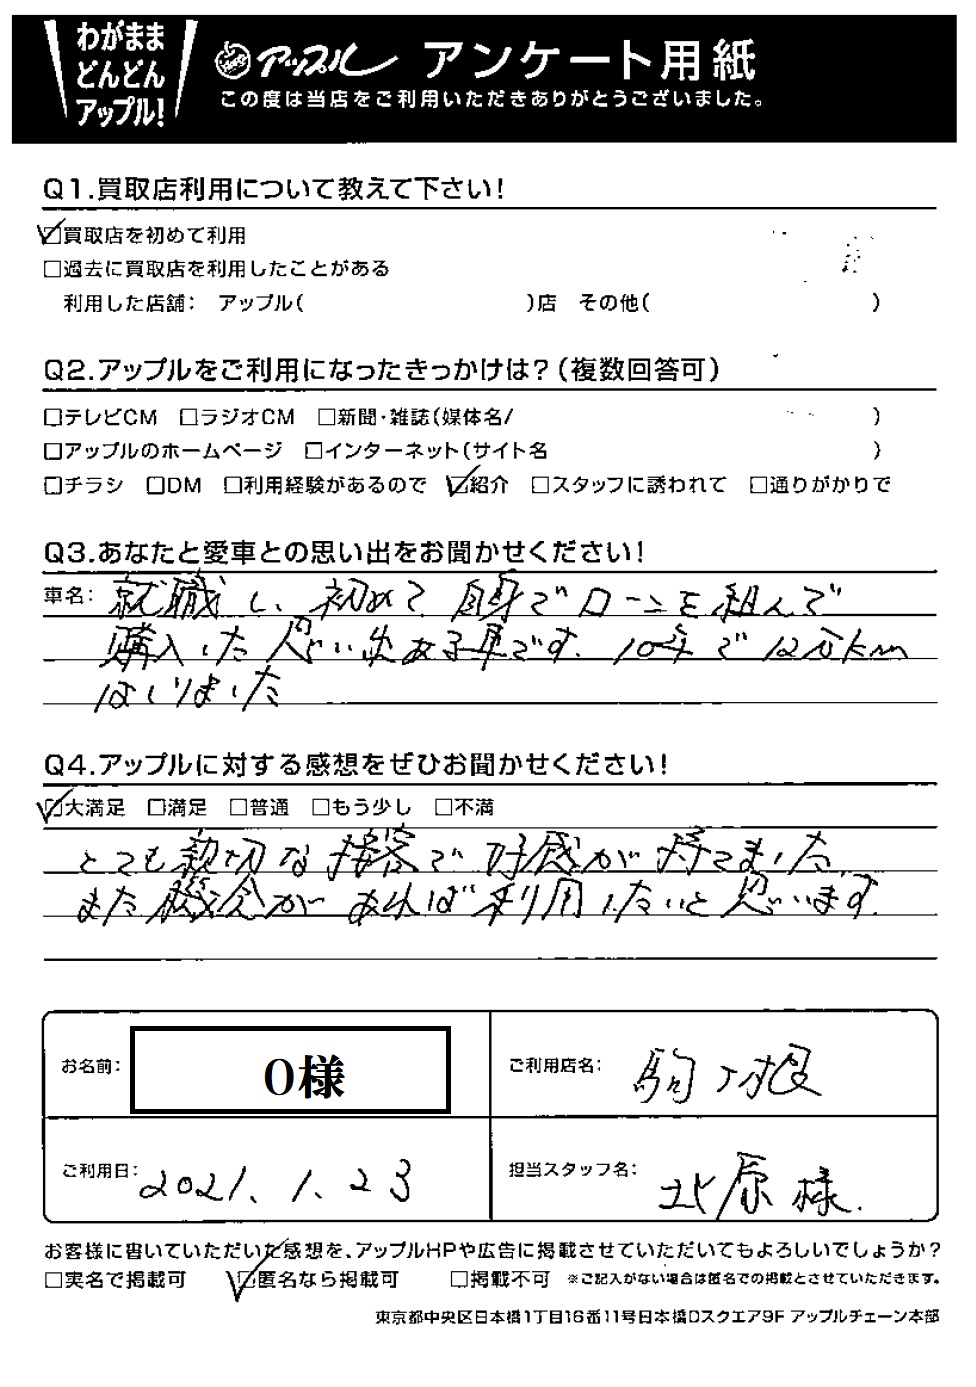 わがまま
どんどん
アップル!
アップル アンケート用紙
この度は当店をご利用いただきありがとうございました。
Q1.買取店利用について教えて下さい!
☑買取店を初めて利用
□過去に買取店を利用したことがある
利用した店舗: アップル( )店 その他( )
Q2.アップルをご利用になったきっかけは?(複数回答可)
□テレビCM □ラジオCM □新聞・雑誌(媒体名/ )
□アップルのホームページ □インターネット(サイト名 )
□チラシ □DM □利用経験があるので ☑紹介 □スタッフに誘われて □通りがかりで
Q3.あなたと愛車との思い出をお聞かせください!
車名: 就職し、初めて自身でローンを組んで
購入した思い出ある車です。10年で12万km
はしりました
Q4.アップルに対する感想をぜひお聞かせください!
☑大満足 □満足 □普通 □もう少し □不満
とても親切な接客で好感が持てました。
また機会があれば利用したいと思います。
お名前: O様
ご利用店名: 駒ヶ根
ご利用日: 2021.1.23
担当スタッフ名: 北原様.
お客様に書いていただいた感想を、アップルHPや広告に掲載させていただいてもよろしいでしょうか?
□実名で掲載可 ☑匿名なら掲載可 □掲載不可 ※ご記入がない場合は匿名での掲載とさせていただきます。
東京都中央区日本橋1丁目16番11号日本橋Dスクエア9F アップルチェーン本部